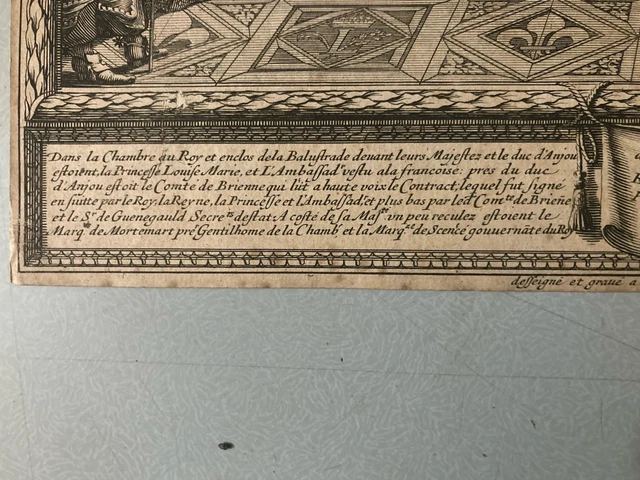 Dans la Chambre au Roy et enclos dela Balustrade deuant leurs Majestez et le duc d'Anjou
estoient, la Princesse Louise Marie, et L'Ambassadr vestu ala francoise: pres du duc
d'Anjou estoit le Comte de Brienne qui lut a haute voix le Contract, lequel fut signé
en suitte par le Roy, la Reyne, la Princesse et l'Ambassadr, et plus bas par led Comte de Briene
et le Sr de Guenegauld Secrets destat: A costé de sa Majte un peu reculez estoient le
Marqis de Mortemart pre Gentilhome de la Chamb, et la Marqse de Scence gouuernāte du Roy
desseigné et graué a